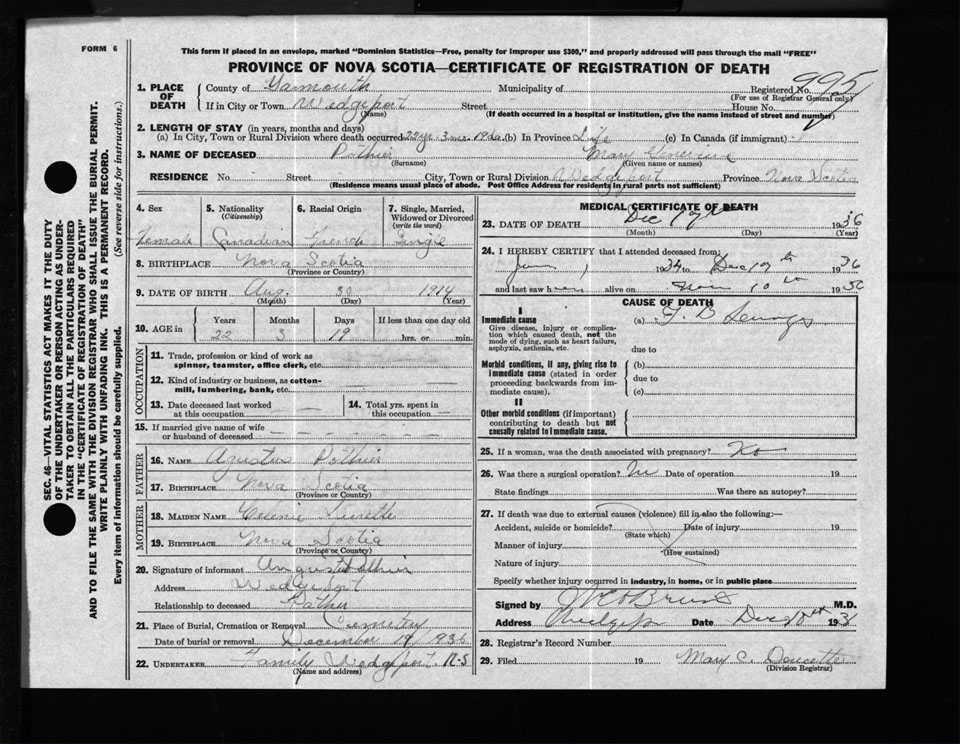 FORM 6
This form if placed in an envelope, marked "Dominion Statistics—Free, penalty for improper use $300," and properly addressed will pass through the mail "FREE"
PROVINCE OF NOVA SCOTIA—CERTIFICATE OF REGISTRATION OF DEATH
1. PLACE OF DEATH County of Yarmouth Municipality of Registered No. 995
(For use of Registrar General only)
If in City or Town Wedgeport Street House No.
(Name) (If death occurred in a hospital or institution, give the name instead of street and number)
2. LENGTH OF STAY (in years, months and days)
(a) In City, Town or Rural Division where death occurred 22 yr. 3 mo. 19 da. (b) In Province Life (c) In Canada (if immigrant)
3. NAME OF DECEASED Pothier Mary
(Surname) (Given name or names)
RESIDENCE No. Street City, Town or Rural Division Wedgeport Province Nova Scotia
(Residence means usual place of abode. Post Office Address for residents in rural parts not sufficient)
SEC. 46—VITAL STATISTICS ACT MAKES IT THE DUTY
OF THE UNDERTAKER OR PERSON ACTING AS UNDER-
TAKER TO OBTAIN ALL THE PARTICULARS REQUIRED
IN THE "CERTIFICATE OF REGISTRATION OF DEATH"
AND TO FILE THE SAME WITH THE DIVISION REGISTRAR WHO SHALL ISSUE THE BURIAL PERMIT.
WRITE PLAINLY WITH UNFADING INK. THIS IS A PERMANENT RECORD.
Every item of information should be carefully supplied. (See reverse side for instructions.)
4. Sex 5. Nationality (Citizenship) 6. Racial Origin 7. Single, Married, Widowed or Divorced (write the word)
Female Canadian French Single
8. BIRTHPLACE Nova Scotia
(Province or Country)
9. DATE OF BIRTH Aug. 30 1914
(Month) (Day) (Year)
10. AGE in Years Months Days If less than one day old
22 3 19 hrs. or min.
OCCUPATION
11. Trade, profession or kind of work as
spinner, teamster, office clerk, etc.
12. Kind of industry or business, as cotton-
mill, lumbering, bank, etc.
13. Date deceased last worked at this occupation 14. Total yrs. spent in this occupation
15. If married give name of wife
or husband of deceased
FATHER
16. NAME Agustus Pothier
17. BIRTHPLACE Nova Scotia
(Province or Country)
MOTHER
18. MAIDEN NAME
19. BIRTHPLACE Nova Scotia
(Province or Country)
20. Signature of informant
Address Wedgeport
Relationship to deceased Father
21. Place of Burial, Cremation or Removal Cemetry
Date of burial or removal December 19 1936
22. UNDERTAKER Family Wedgeport. N.S
(Name and address)
MEDICAL CERTIFICATE OF DEATH
23. DATE OF DEATH Dec 1936
(Month) (Day) (Year)
24. I HEREBY CERTIFY that I attended deceased from:
1934 to Dec 1936
and last saw h alive on 1936
CAUSE OF DEATH
I
Immediate cause (a) T. B Lungs
Give disease, injury or complica-
tion which caused death, not the
mode of dying, such as heart failure,
asphyxia, asthenia, etc. due to
Morbid conditions, if any, giving rise to (b)
immediate cause (stated in order due to
proceeding backwards from im-
mediate cause). (c)
II
Other morbid conditions (if important)
contributing to death but not
causally related to immediate cause.
25. If a woman, was the death associated with pregnancy? No
26. Was there a surgical operation? No Date of operation 19
State findings Was there an autopsy?
27. If death was due to external causes (violence) fill in also the following:—
Accident, suicide or homicide? Date of injury 19
(State which)
Manner of injury
(How sustained)
Nature of injury
Specify whether injury occurred in industry, in home, or in public place
Signed by M.D.
Address Date Dec 193
28. Registrar's Record Number
29. Filed 19 Mary C. Doucette
(Division Registrar)